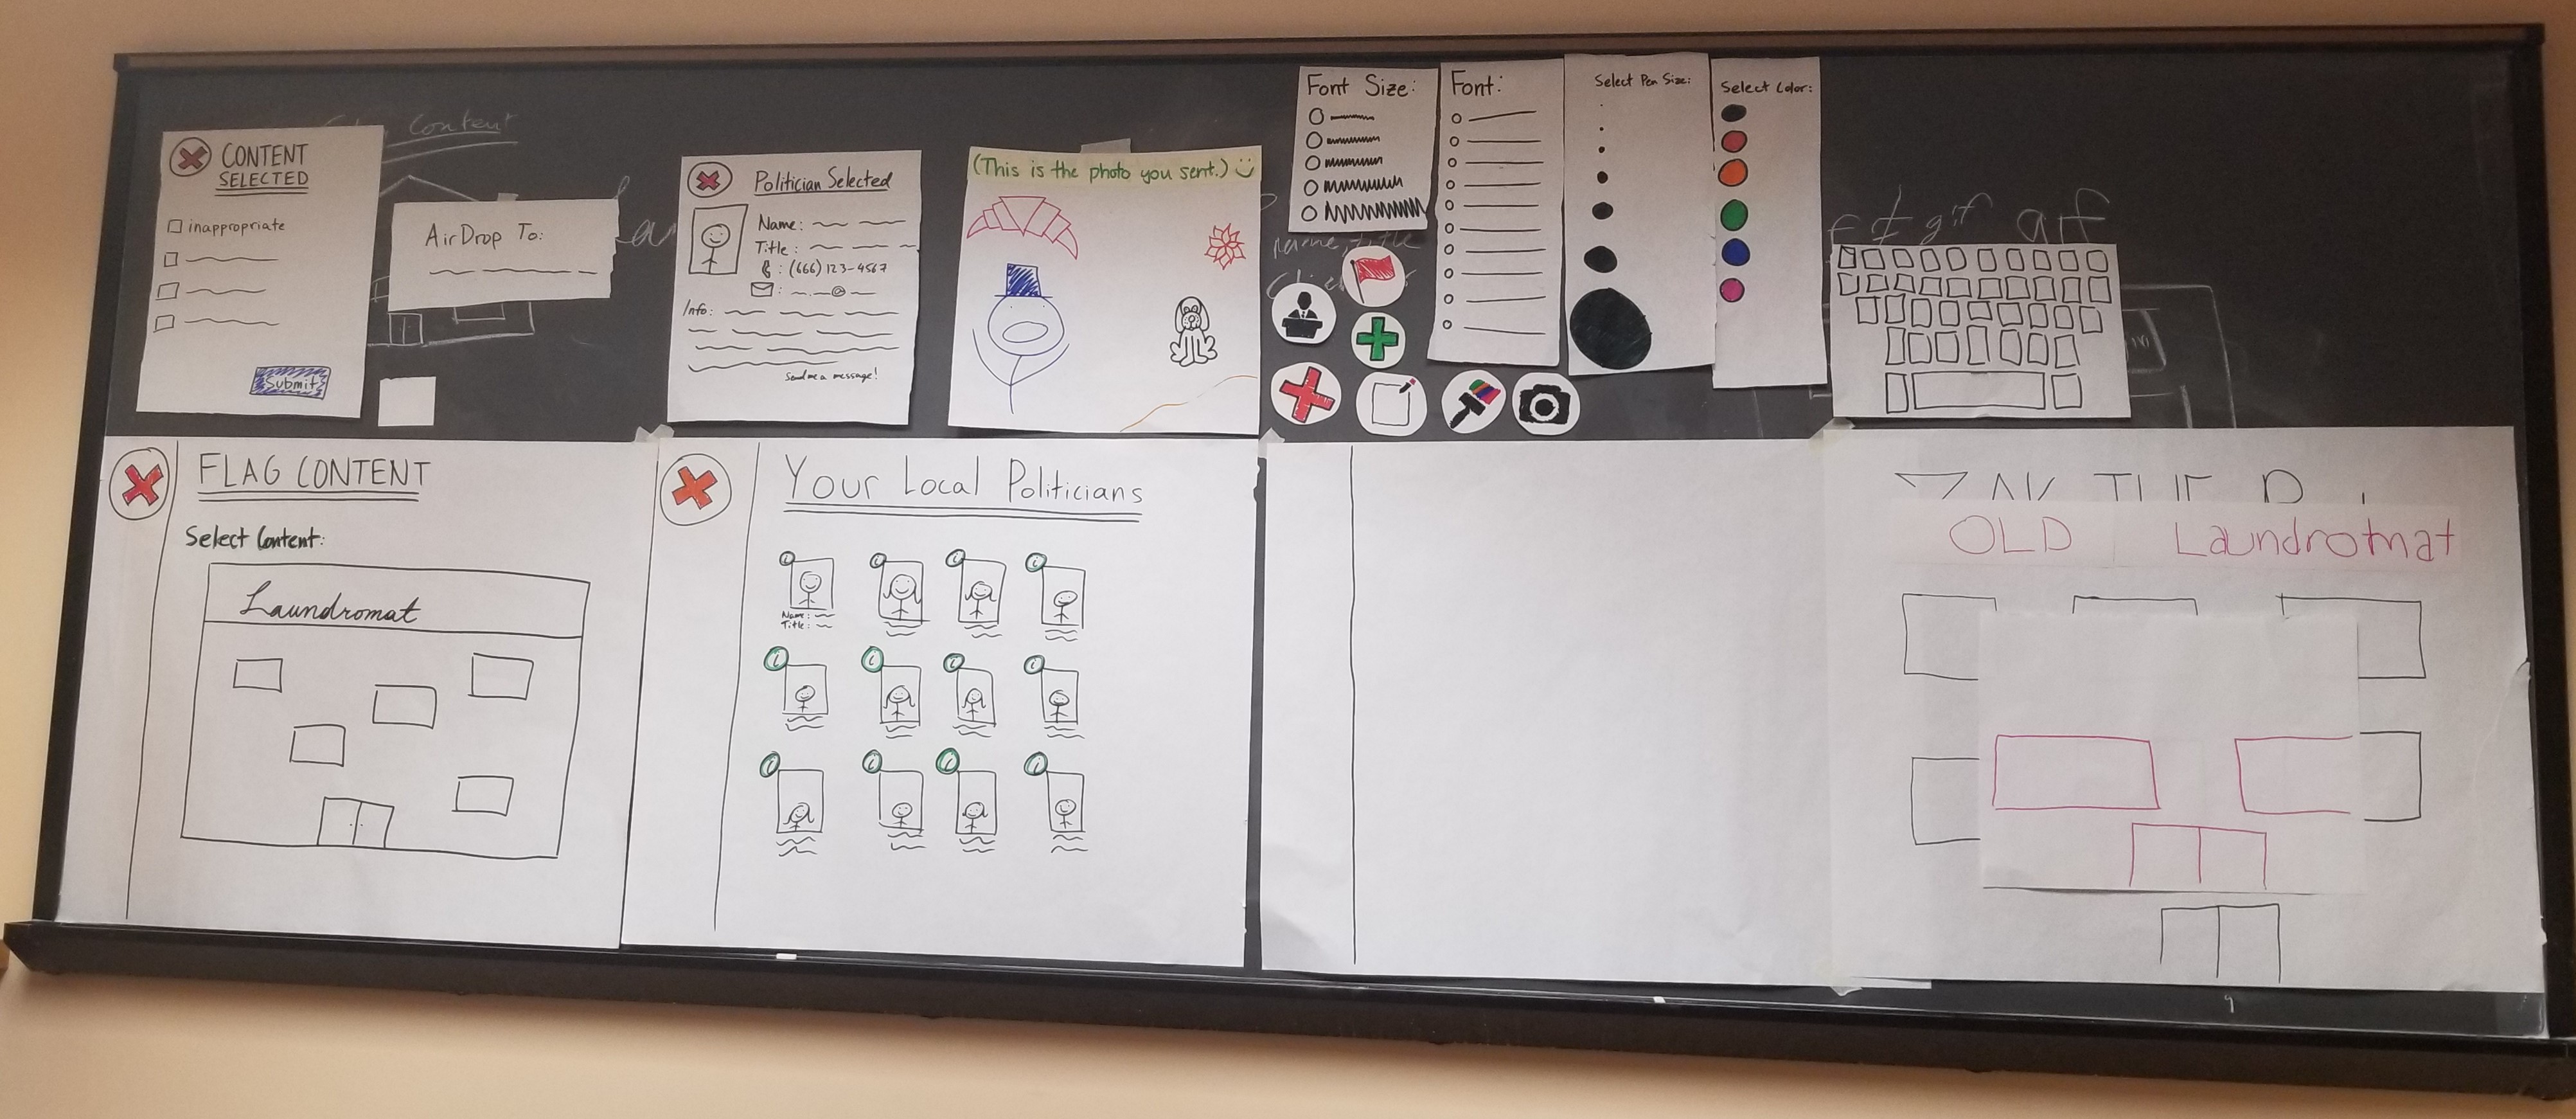 CONTENT
SELECTED
inappropriate
Submit
Content
AirDrop To:
Politician Selected
Name:
Title:
: (666) 123-4567
: @
Info:
Send me a message!
(This is the photo you sent.)
Font Size:
Font:
Select Pen Size:
Select Color:
name, title
FLAG CONTENT
Select Content:
Laundromat
Your Local Politicians
i i i i
Name:
Title:
i i i i
i i i i
OLD Laundromat